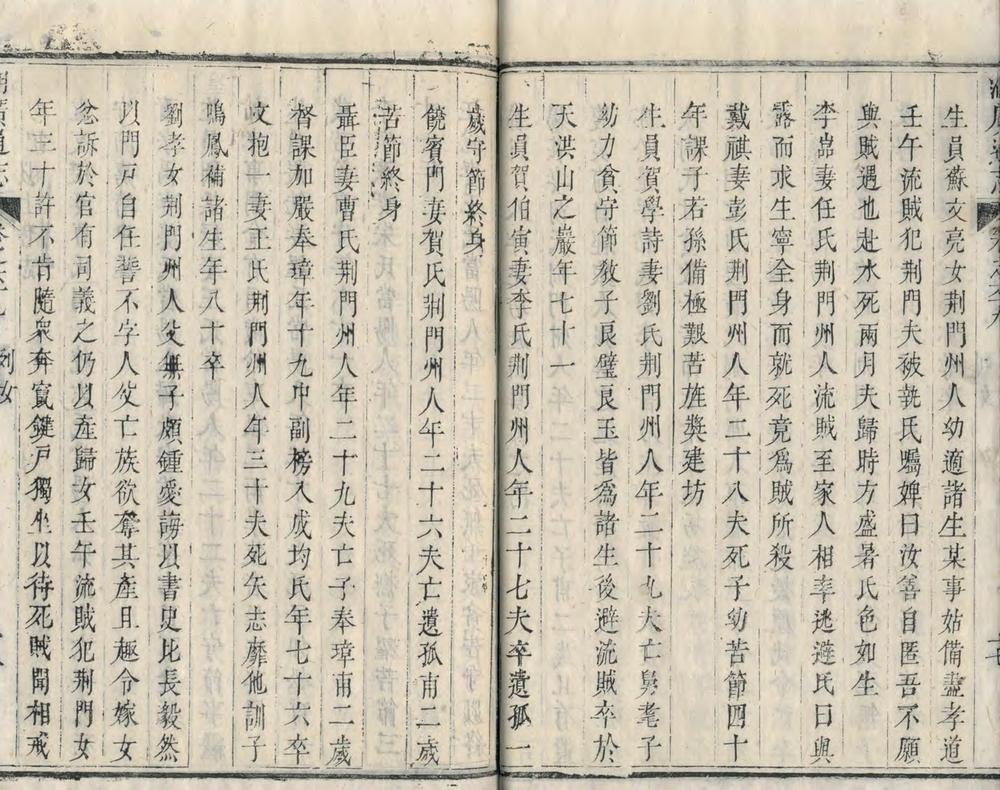 生員蘇文亮女荆門州人幼適諸生某事姑備盡孝道
壬午流賊犯荆門夫被執氏囑婢曰汝善自匿吾不願
與賊遇也赴水死兩月夫歸時方盛暑氏色如生
李嵓妻任氏荆門州人流賊至家人相率逃避氏曰與
露而求生寧全身而就死竟爲賊所殺
戴祺妻彭氏荆門州人年二十八夫死子幼苦節四十
年課子若孫備極艱苦旌獎建坊
生員賀學詩妻劉氏荆門州人年二十九夫亡舅耄子
幼力貧守節敎子良璧良玉皆爲諸生後避流賊卒於
天洪山之巖年七十一
生員賀伯寅妻李氏荆門州人年二十七夫卒遺孤一
歲守節終身
饒賓門妻賀氏荆門州人年二十六夫亡遺孤甫二歲
苦節終身
聶臣妻曹氏荆門州人年二十九夫亡子奉璋甫二歲
督課加嚴奉璋年十九中副榜入成均氏年七十六卒
文抱一妻王氏荆門州人年三十夫死矢志靡他訓子
鳴鳳補諸生年八十卒
劉孝女荆門州人父無子頗鍾愛誨以書史比長毅然
以門戸自任誓不字人父亡族欲奪其產且趣令嫁女
忿訴於官有司義之仍以產歸女壬午流賊犯荆門女
年三十許不肯隨衆奔竄鍵戸獨坐以待死賊聞相戒
列女